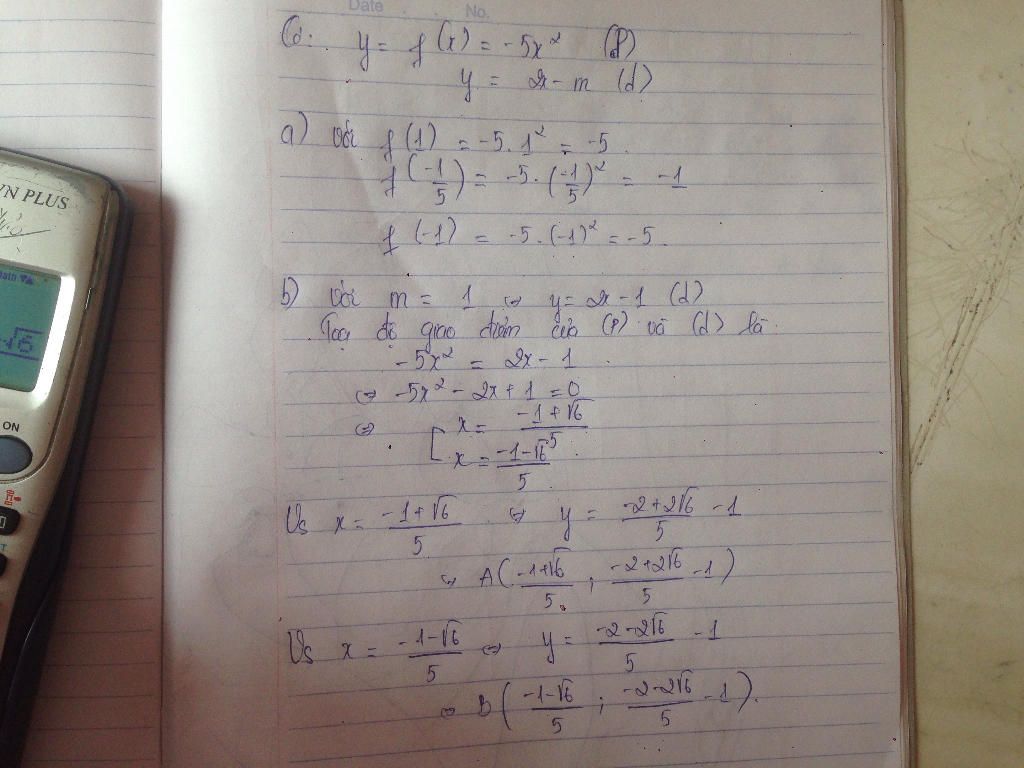 Date No.
Có: y = f(x) = -5x² (P)
y = 2x - m (d)
a) Với f(1) = -5.1² = -5.
f(-1/5) = -5.(-1/5)² = -1
f(-1) = -5.(-1)² = -5.
b) Với m = 1 ⇔ y = 2x - 1 (d)
Tọa độ giao điểm của (P) và (d) là
-5x² = 2x - 1.
⇔ -5x² - 2x + 1 = 0
⇔ [ x = (-1+√6)/5
x = (-1-√6)/5.
Vs x = (-1+√6)/5 ⇔ y = (-2+2√6)/5 - 1
⇔ A((-1+√6)/5 ; (-2+2√6)/5 - 1)
Vs x = (-1-√6)/5 ⇔ y = (-2-2√6)/5 - 1
⇔ B((-1-√6)/5 ; (-2-2√6)/5 - 1).
WN PLUS
√6
ON